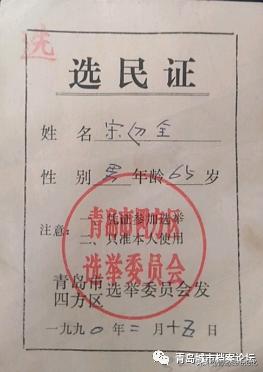 选
选民证
姓 名 宋
性 别 男 年龄 65 岁
注意：
一、凭证参加选举
二、只准本人使用
青岛市四方区
选举委员会
青岛市
四方区 选举委员会发
一九九〇年二月十五日
青岛城市档案论坛